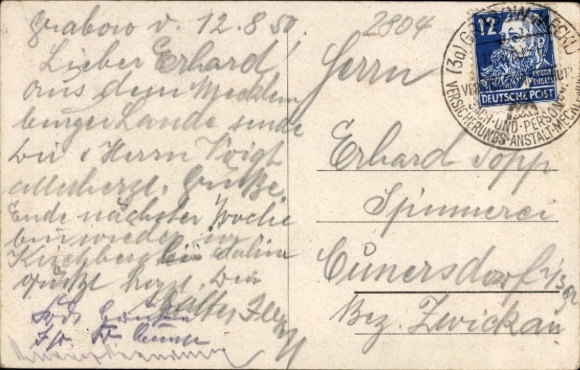 Grabow d. 12.8.50.
Lieber Erhard!
Aus dem Mecklen
burger Lande sende
Dir & Herrn Voigt
allerherzl. Grüße
Ende nächster Woche
bin wieder in
Kirchberg bis dahin
grüßt herzl. Dein
Walter
2804
Herrn
Erhard Popp
Spinnerei
Cunersdorf
Bez. Zwickau
12
DEUTSCHE POST
(3a) GRABOW (MECKL)
SACH-UND-PERSON
VERSICHERUNGS-ANSTALT-MECK